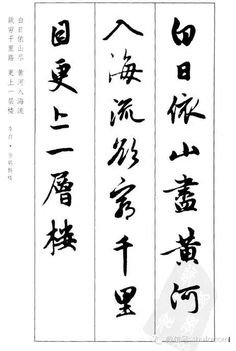 白日依山盡黄河
入海流欲窮千里
目更上一層楼
白日依山尽 黄河入海流
欲穷千里路 更上一层楼